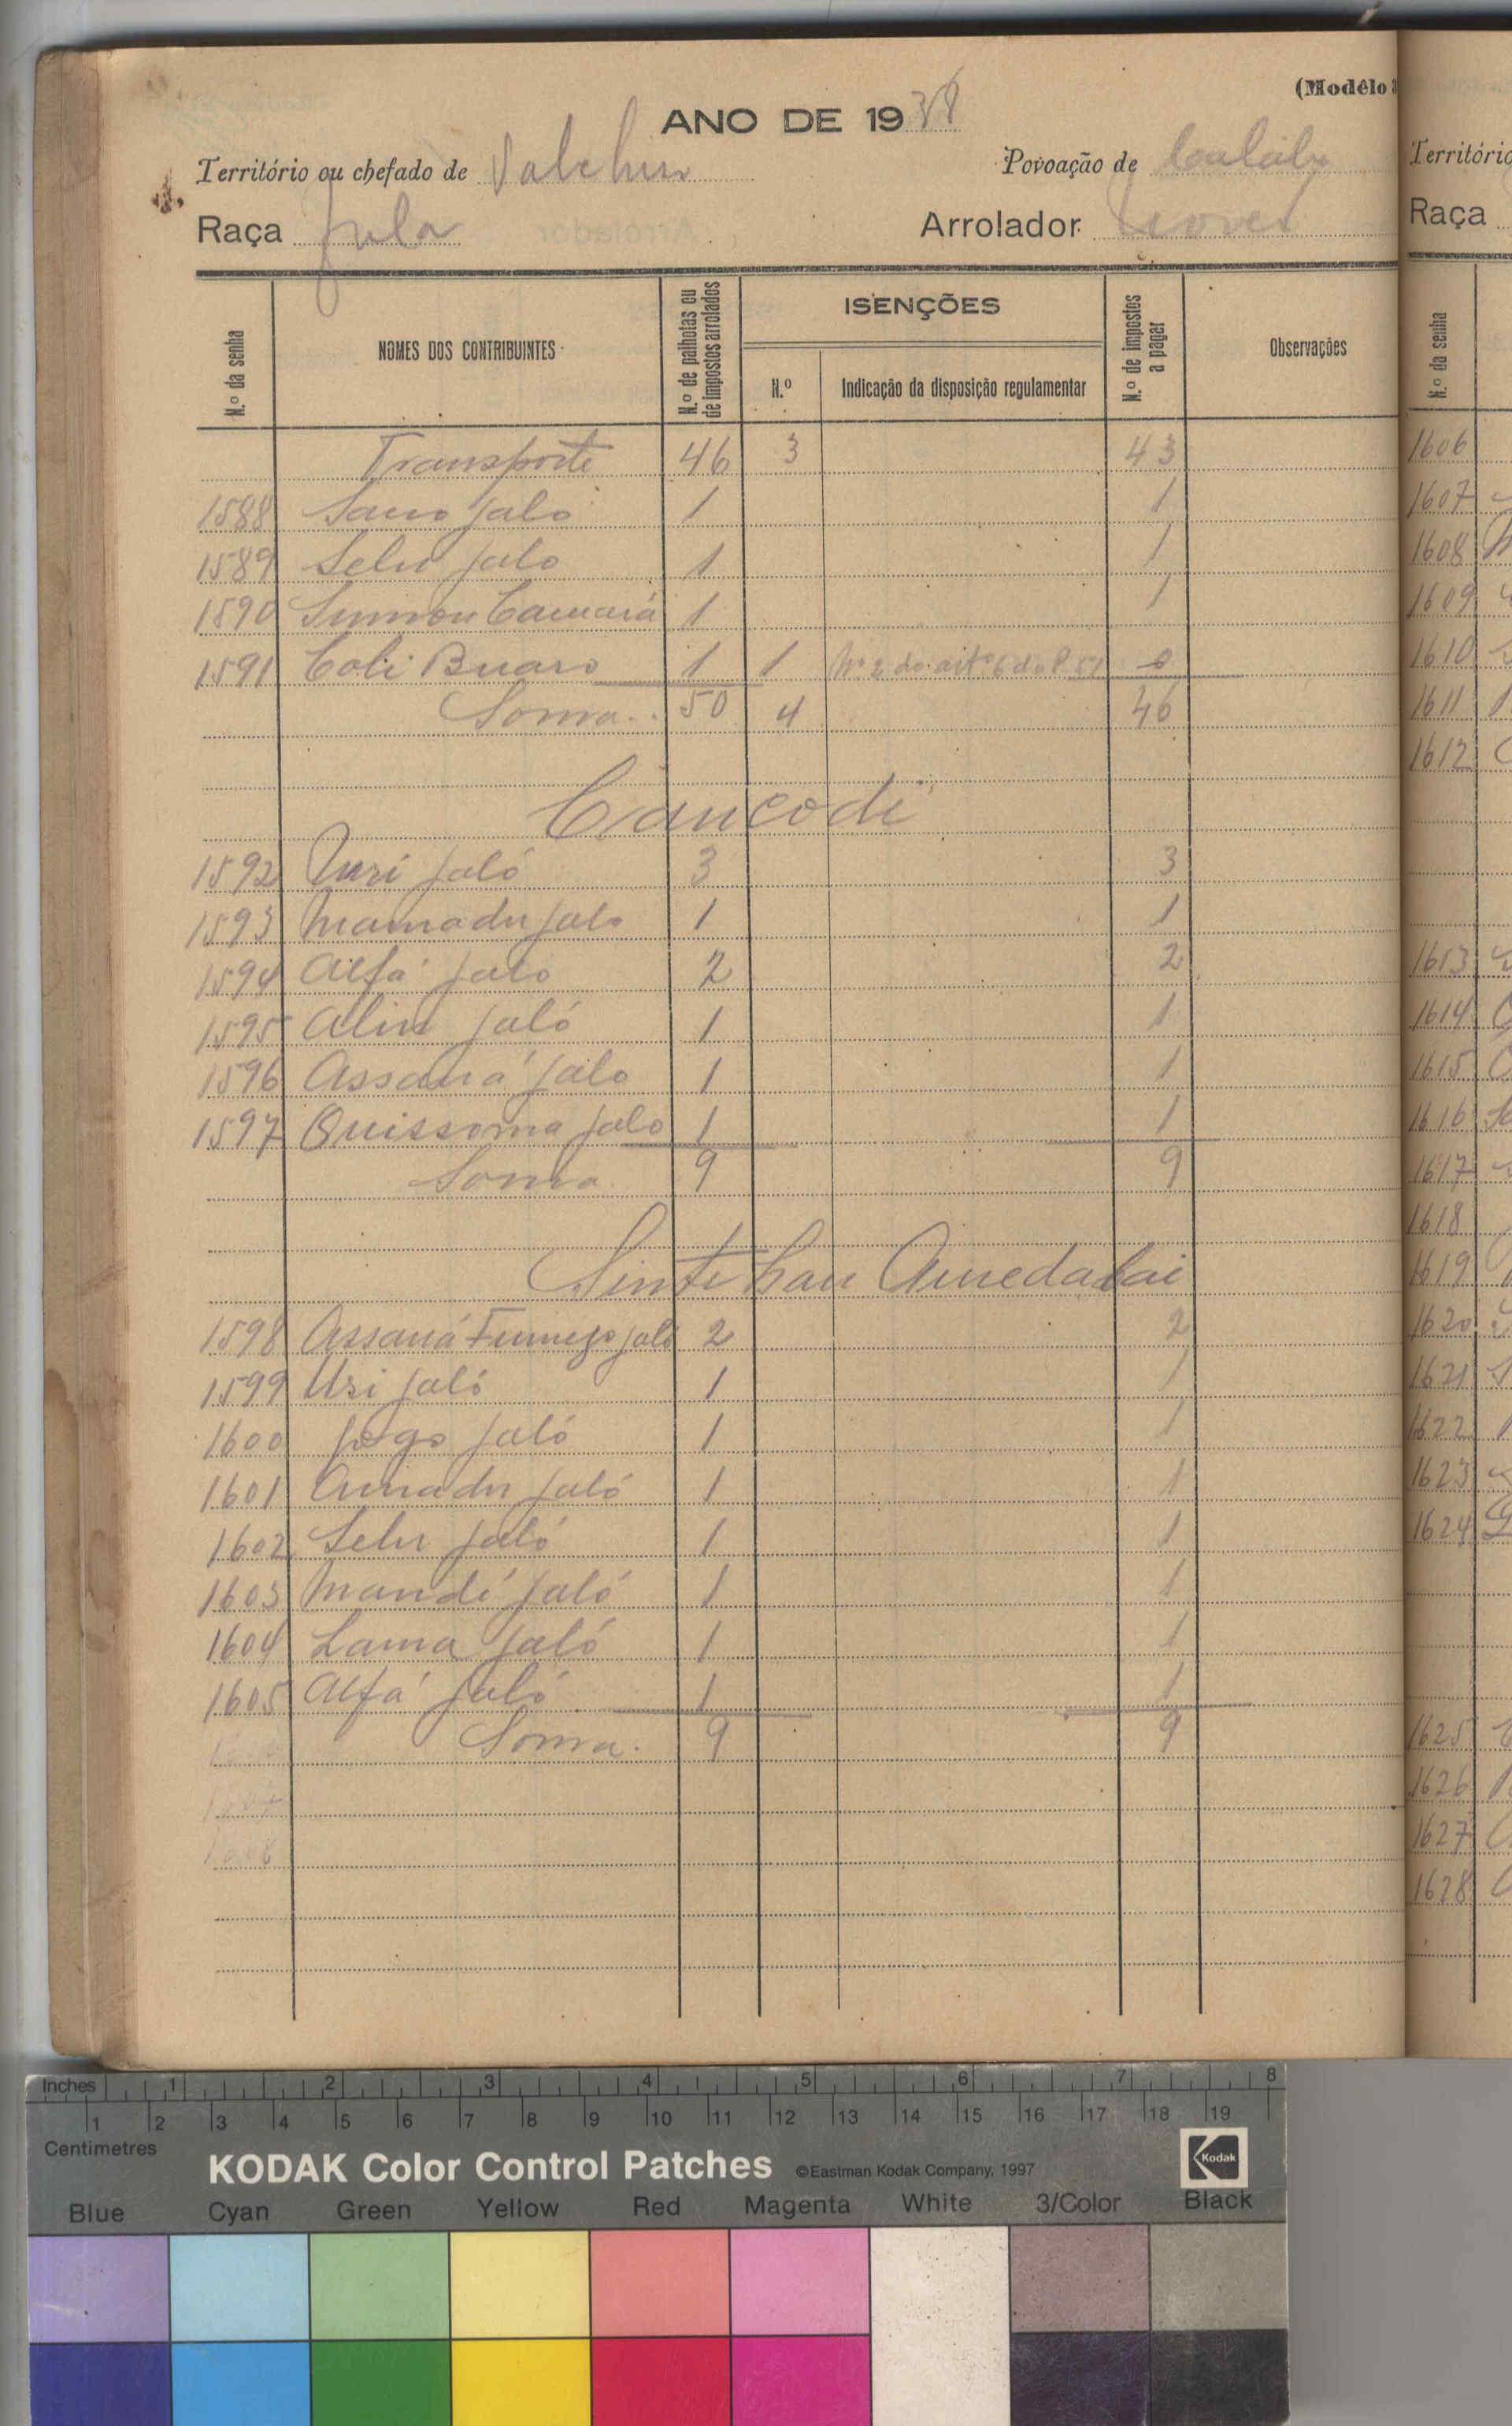 (Modêlo
ANO DE 1938
Território ou chefado de
Povoação de
Raça Fula
Arrolador
N.º da senha
NOMES DOS CONTRIBUINTES
N.º de palhotas ou de impostos arrolados
ISENÇÕES
N.º
Indicação da disposição regulamentar
N.º de impostos a pagar
Observações
Transporte 46 3 43
1588 Jaló 1 1
1589 Selu Jalo 1 1
1590 Camará 1 1
1591 Coli Buaro 1 1 Nº 2 do artº 6 do 0
Soma 50 4 46
Cancodi
1592 Jaló 3 3
1593 Mamadu Jalo 1 1
1594 Alfá Jalo 2 2
1595 Aliu Jaló 1 1
1596 Assaná Jalo 1 1
1597 Quissoma Jalo 1 1
Soma 9 9
Sintchan Amedalai
1598 Assaná Jaló 2 2
1599 Uri Jaló 1 1
1600 Jogo Jaló 1 1
1601 Amadu Jaló 1 1
1602 Selu Jaló 1 1
1603 Mandé Jaló 1 1
1604 Lama Jaló 1 1
1605 Alfá Jaló 1 1
Soma 9 9
Território
Raça
N.º da senha
1606
1607
1608
1609
1610
1611
1612
1613
1614
1615
1616
1617
1618
1619
1620
1621
1622
1623
1624
1625
1626
1627
1628
Inches 1 2 3 4 5 6 7 8
1 2 3 4 5 6 7 8 9 10 11 12 13 14 15 16 17 18 19
Centimetres
KODAK Color Control Patches ©Eastman Kodak Company, 1997 Kodak
Blue Cyan Green Yellow Red Magenta White 3/Color Black